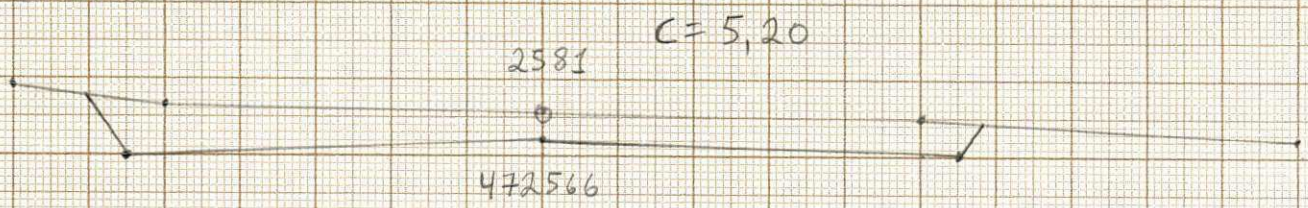 C = 5,20
2581
472566